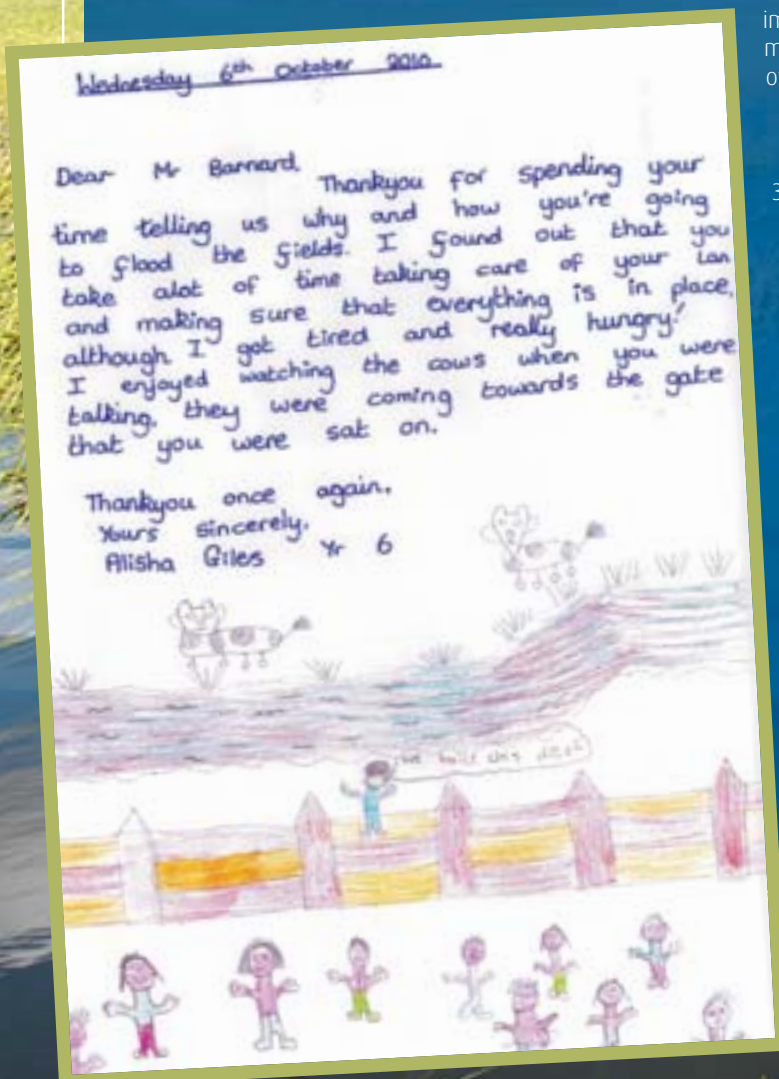 Wednesday 6th October 2010
Dear Mr Barnard,
Thankyou for spending your
time telling us why and how you're going
to flood the fields. I found out that you
take alot of time taking care of your lan
and making sure that everything is in place,
although I got tired and really hungry!
I enjoyed watching the cows when you were
talking, they were coming towards the gate
that you were sat on.
Thankyou once again,
Yours sincerely,
Alisha Giles Yr 6
we built this ditch
im
m
o
3